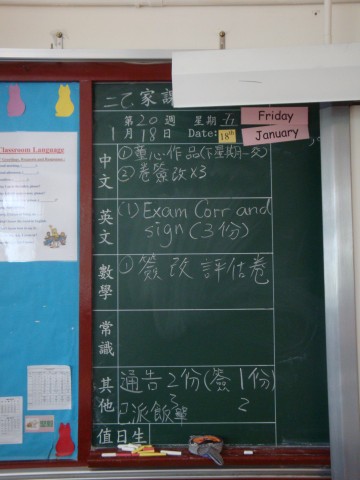 二乙家課
第20週 星期五 Friday
1月18日 Date: 18th January
中文
①童心作品(下星期一交)
②卷簽改×3
英文
(1) Exam Corr and
sign (3份)
數學
①簽改評估卷
常識
其他
通告2份(簽1份)
3 2
已派飯單
值日生
Classroom Language